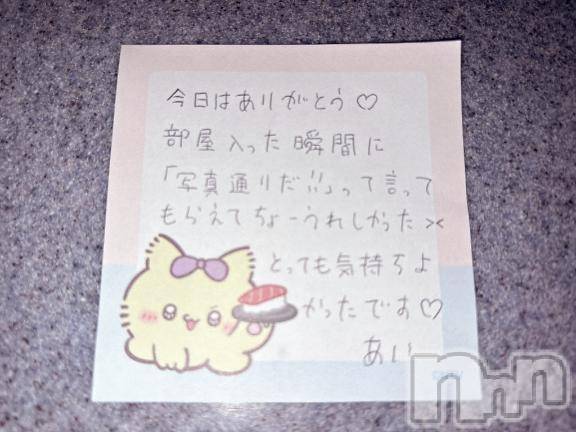 今日はありがとう♡
部屋入った瞬間に
「写真通りだ!!」って言って
もらえてちょーうれしかった><
とっても気持ちよ
かったです♡
あい
nnn